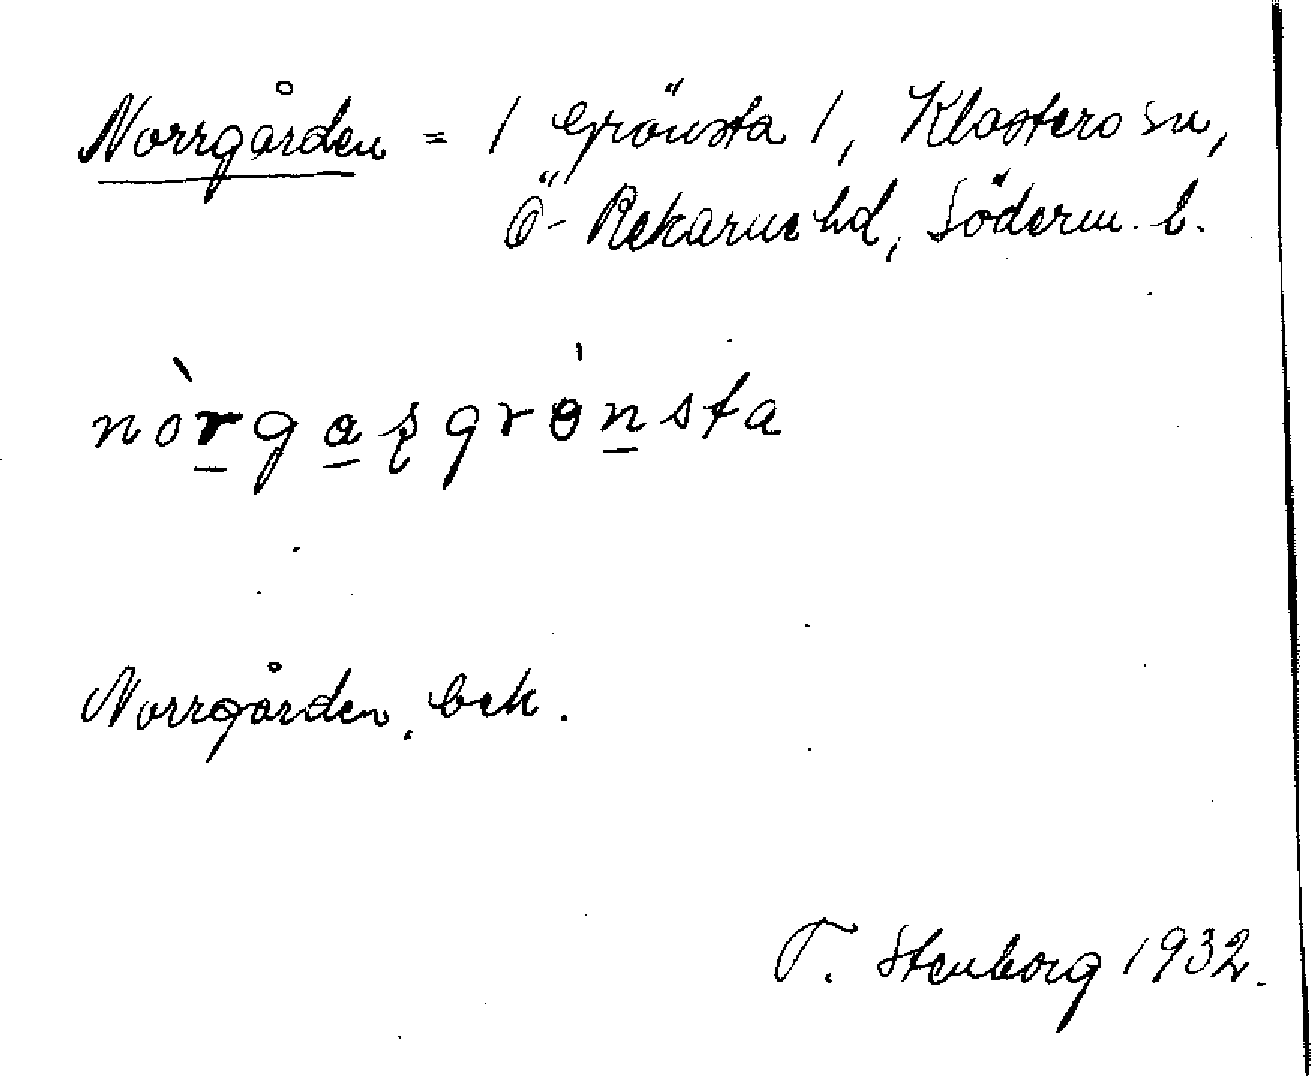 Norrgården = 1 Grönsta 1, Klosters sn,
Ö- Rekarne hd, Söderm. l.
nòrgaʂgrɵ̀nsta
Norrgården, bek.
T. Stenborg 1932.